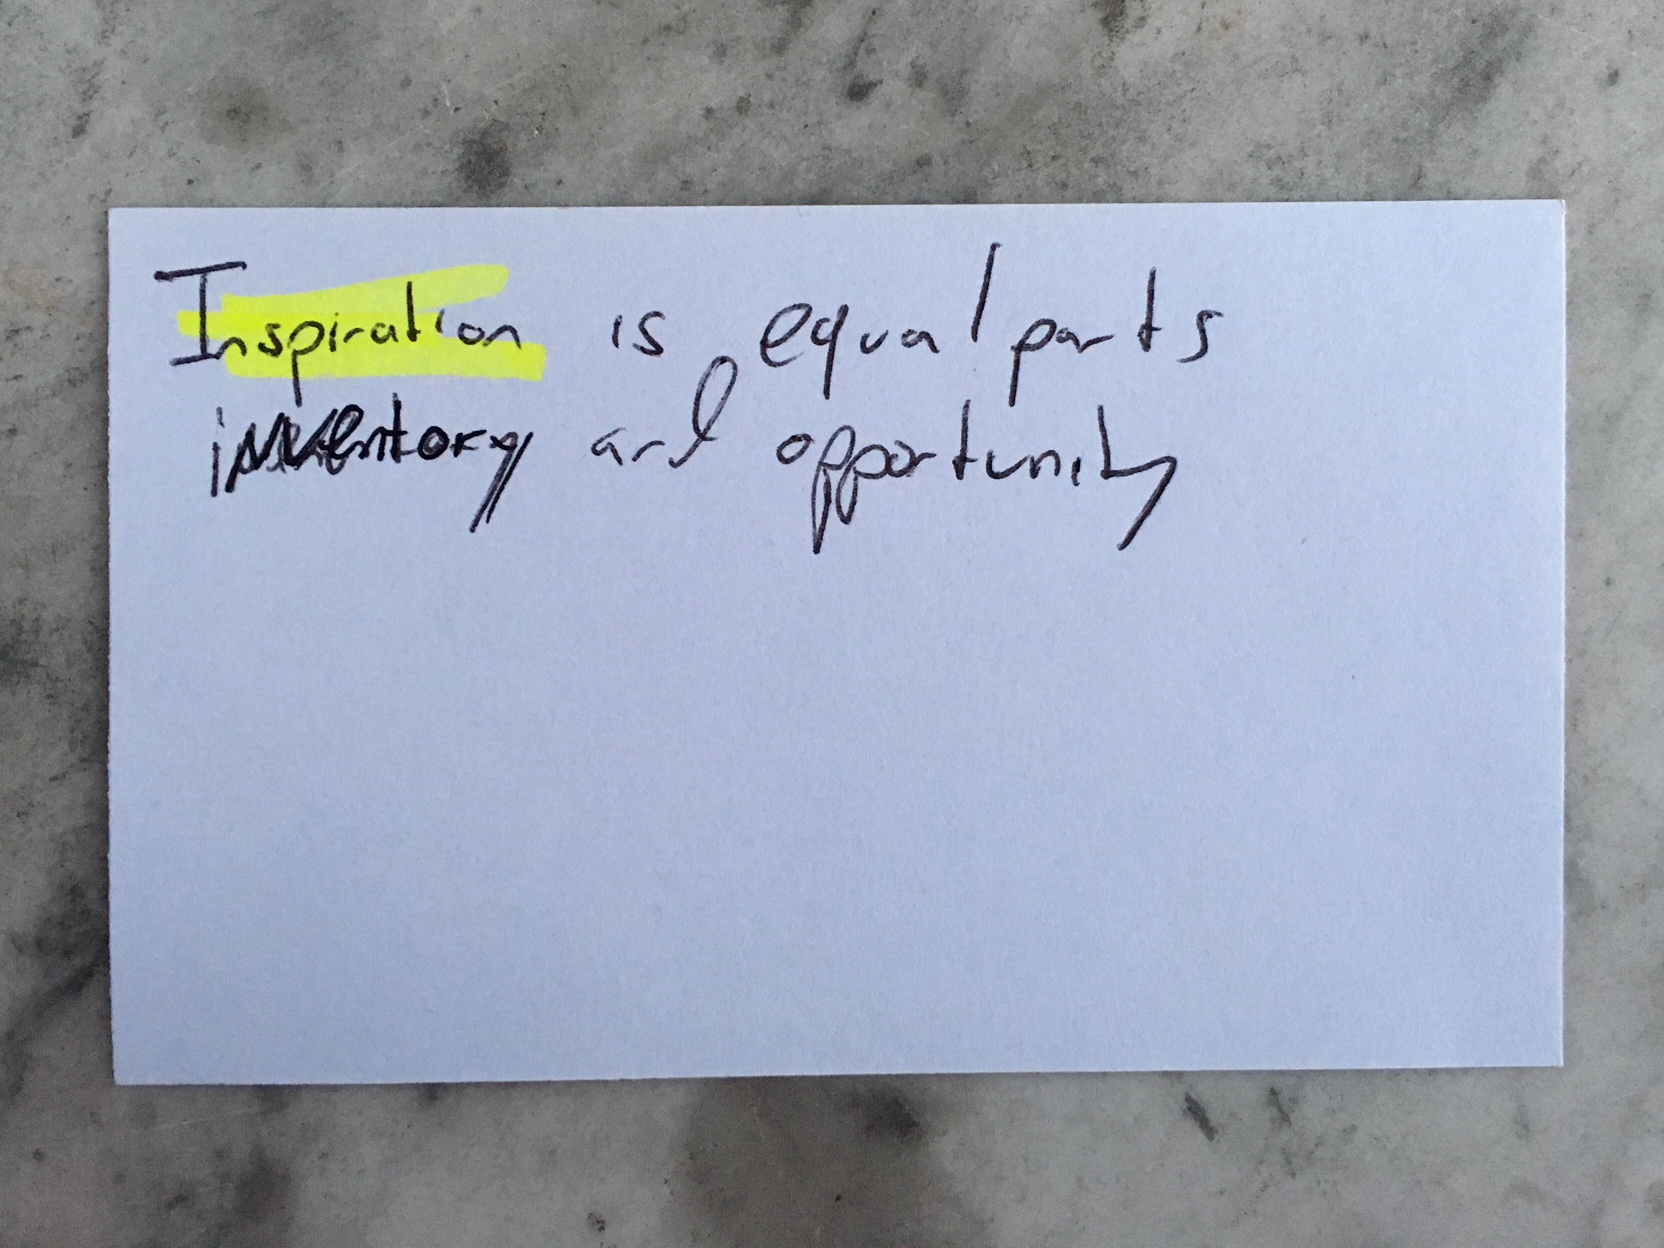 Inspiration is equal parts
inventory and opportunity